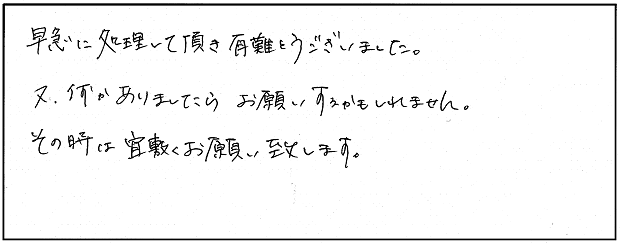 早急に処理して頂き有難とうございました。
又、何かありましたら お願いするかもしれません。
その時は宜敷くお願い致します。